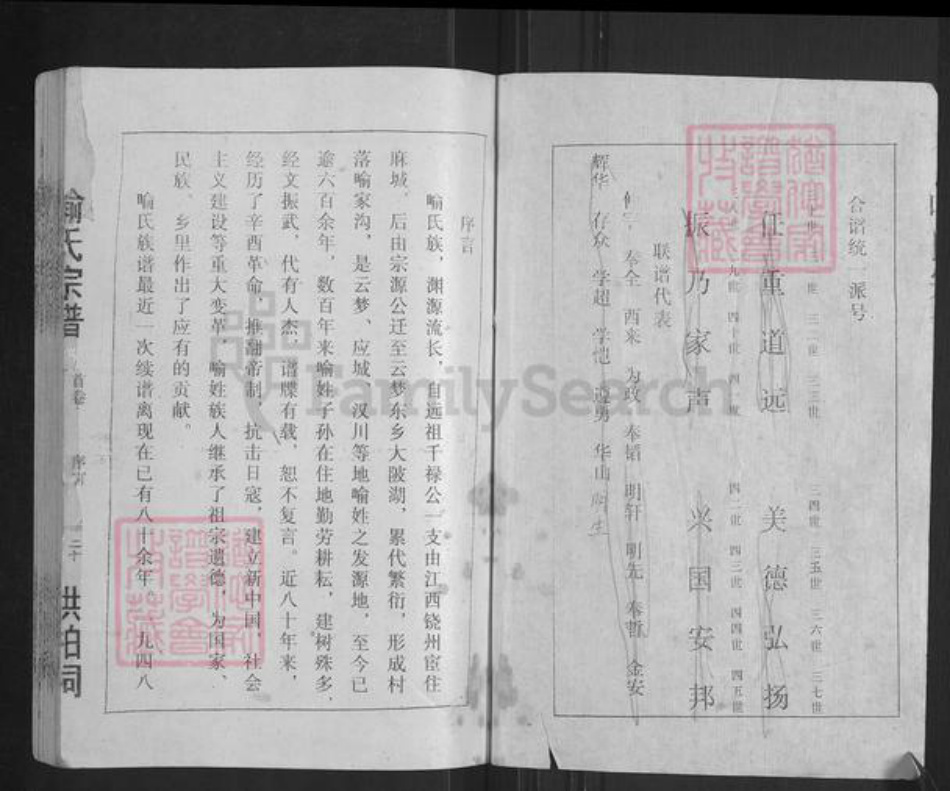 合谱统一派号
三一世 三三世 三四世 三五世 三六世 三七世
任重道远 美德弘扬
九世 四十世 四二世 四三世 四四世 四五世
振乃家声 兴国安邦
联谱代表
奉全 西来 为政 奉韬 明轩 明先 奉哲 金安
辉华 存众 学超 学恺 遵勇 华山
序言
喻氏族,渊源流长,自远祖千禄公一支由江西饶州宦住
麻城,后由宗源公迁至云梦东乡大陂湖,累代繁衍,形成村
落喻家沟,是云梦、应城、汉川等地喻姓之发源地,至今已
逾六百余年,数百年来喻姓子孙在住地勤劳耕耘,建树殊多,
经文振武,代有人杰,谱牒有载,恕不复言。近八十年来,
经历了辛酉革命,推翻帝制,抗击日寇,建立新中国,社会
主义建设等重大变革,喻姓族人继承了祖宗遗德,为国家、
民族、乡里作出了应有的贡献。
喻氏族谱最近一次续谱离现在已有八十余年。九四八
喻氏宗谱
首卷
序言
二十
洪柏祠
FamilySearch